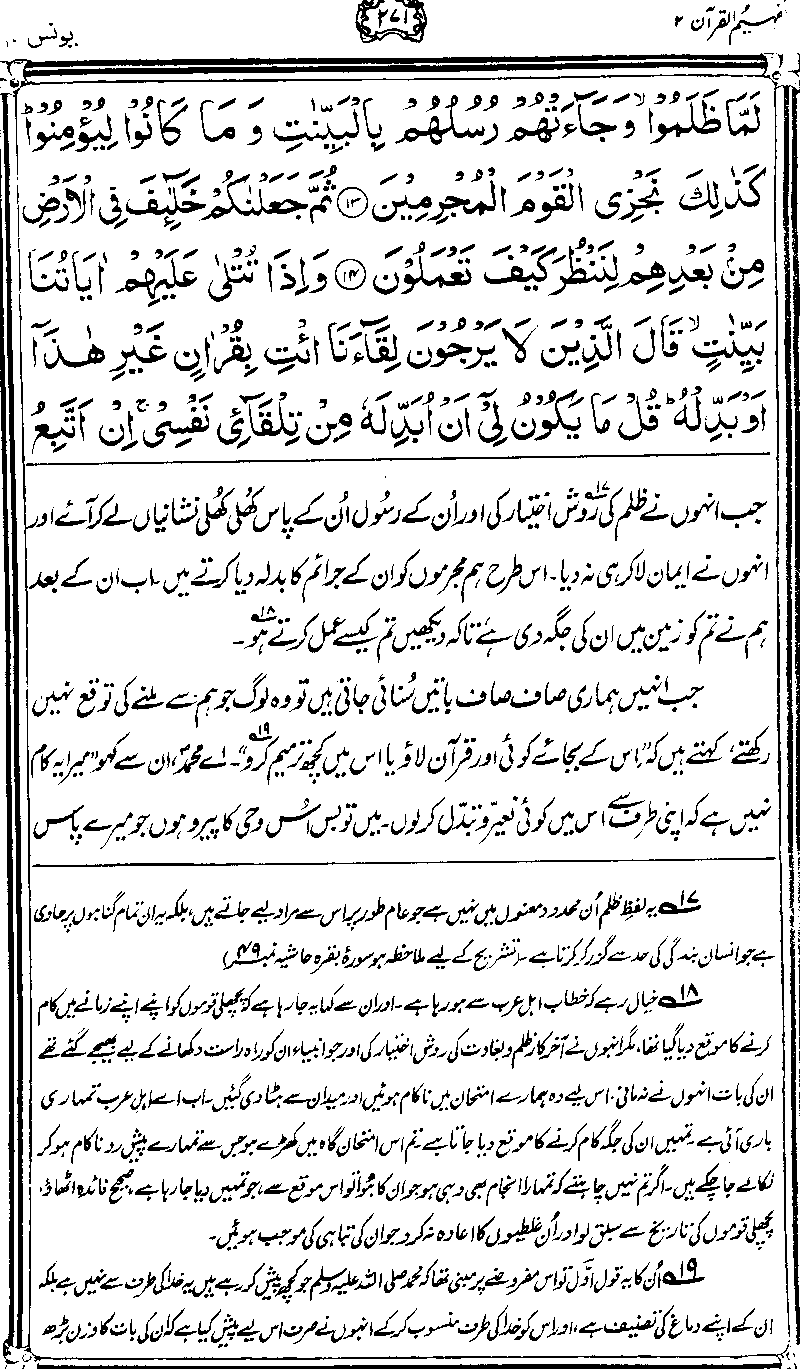 تفہیم القرآن ۲
۲۷۱
یونس ۱۰
لَمَّا ظَلَمُوْا ۙ وَجَآءَتْهُمْ رُسُلُهُمْ بِالْبَيِّنٰتِ وَ مَا كَانُوْا لِيُؤْمِنُوْا ؕ
كَذٰلِكَ نَجْزِى الْقَوْمَ الْمُجْرِمِيْنَ ⑬ ثُمَّ جَعَلْنٰكُمْ خَلٰٓئِفَ فِى الْاَرْضِ
مِنْۢ بَعْدِهِمْ لِنَنْظُرَ كَيْفَ تَعْمَلُوْنَ ⑭ وَاِذَا تُتْلٰى عَلَيْهِمْ اٰيَاتُنَا
بَيِّنٰتٍ ۙ قَالَ الَّذِيْنَ لَا يَرْجُوْنَ لِقَآءَنَا ائْتِ بِقُرْاٰنٍ غَيْرِ هٰذَآ
اَوْ بَدِّلْهُ ؕ قُلْ مَا يَكُوْنُ لِىْٓ اَنْ اُبَدِّلَهٗ مِنْ تِلْقَآئِ نَفْسِىْ ۚ اِنْ اَتَّبِعُ
جب انہوں نے ظلم کی روش ۱۷ اختیار کی اور اُن کے رسُول اُن کے پاس کھُلی کھُلی نشانیاں لے کر آئے اور
انہوں نے ایمان لا کر ہی نہ دیا۔ اس طرح ہم مجرموں کو ان کے جرائم کا بدلہ دیا کرتے ہیں۔ اب ان کے بعد
ہم نے تم کو زمین میں ان کی جگہ دی ہے، تاکہ دیکھیں تم کیسے عمل کرتے ہو ۱۸۔
جب انہیں ہماری صاف صاف باتیں سُنائی جاتی ہیں تو وہ لوگ جو ہم سے ملنے کی توقع نہیں
رکھتے، کہتے ہیں کہ ”اس کے بجائے کوئی اور قرآن لاؤ یا اس میں کچھ ترمیم کرو ۱۹“۔ اے محمدؐ، ان سے کہو ”میرا یہ کام
نہیں ہے کہ اپنی طرف سے اس میں کوئی تغیر و تبدّل کر لوں۔ میں تو بس اُس وحی کا پیرو ہوں جو میرے پاس
۱۷ یہ لفظِ ظلم اُن محدود معنوں میں نہیں ہے جو عام طور پر اس سے مراد لیے جاتے ہیں، بلکہ یہ ان تمام گناہوں پر حاوی
ہے جو انسان بندگی کی حد سے گزر کر کرتا ہے۔ (تشریح کے لیے ملاحظہ ہو سورۂ بقرہ حاشیہ نمبر ۴۹)
۱۸ خیال رہے کہ خطاب اہل عرب سے ہو رہا ہے۔ اور ان سے کہا یہ جا رہا ہے کہ پچھلی قوموں کو اپنے اپنے زمانے میں کام
کرنے کا موقع دیا گیا تھا، مگر انہوں نے آخر کار ظلم و بغاوت کی روش اختیار کی اور جو انبیاء ان کو راہ راست دکھانے کے لیے بھیجے گئے تھے
ان کی بات انہوں نے نہ مانی۔ اس لیے وہ ہمارے امتحان میں ناکام ہوئیں اور میدان سے ہٹا دی گئیں۔ اب اے اہل عرب تمہاری
باری آئی ہے۔ تمہیں ان کی جگہ کام کرنے کا موقع دیا جاتا ہے۔ تم اس امتحان گاہ میں کھڑے ہو جس سے تمہارے پیش رو ناکام ہو کر
نکالے جا چکے ہیں۔ اگر تم نہیں چاہتے کہ تمہارا انجام بھی وہی ہو جو ان کا ہوا تو اس موقع سے، جو تمہیں دیا جا رہا ہے، صحیح فائدہ اٹھاؤ،
پچھلی قوموں کی تاریخ سے سبق لو اور اُن غلطیوں کا اعادہ نہ کرو جو ان کی تباہی کی موجب ہوئیں۔
۱۹ اُن کا یہ قول اوّل تو اس مفروضے پر مبنی تھا کہ محمد صلی اللہ علیہ وسلم جو کچھ پیش کر رہے ہیں یہ خدا کی طرف سے نہیں ہے بلکہ
ان کے اپنے دماغ کی تصنیف ہے، اور اس کو خدا کی طرف منسوب کر کے انہوں نے صرف اس لیے پیش کیا ہے کہ ان کی بات کا وزن بڑھ